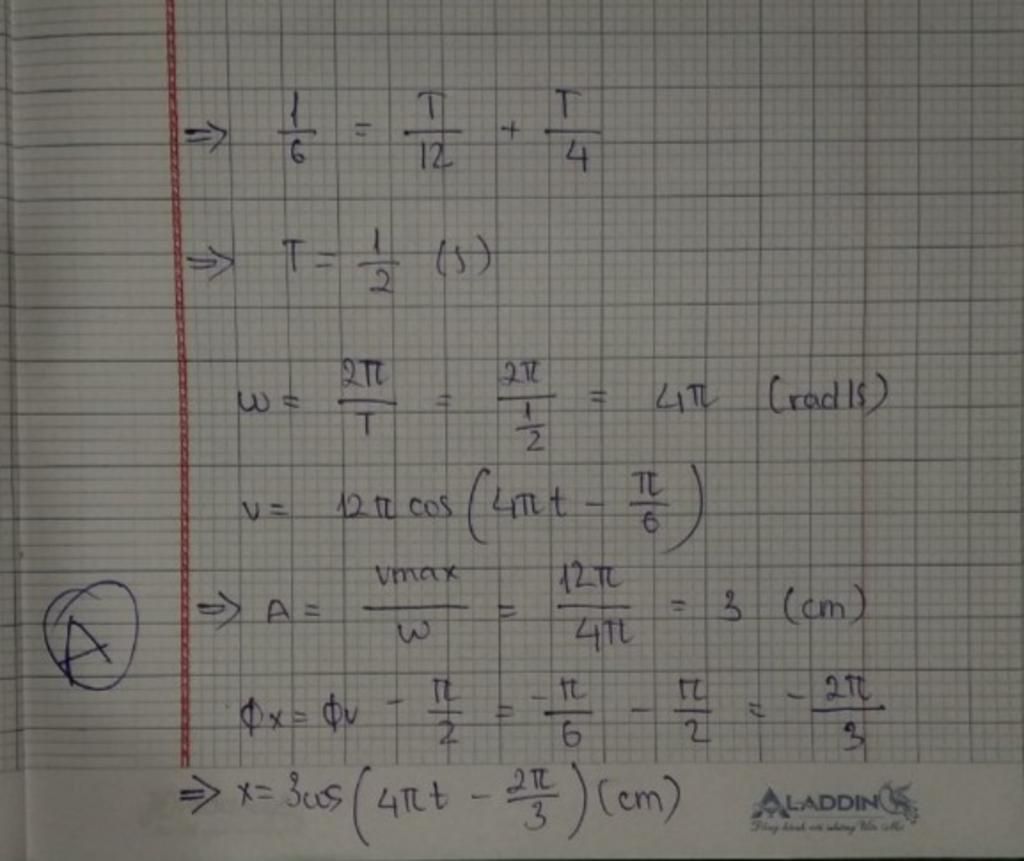 ⇒ 1/6 = T/12 + T/4
⇒ T = 1/2 (s)
ω = 2π/T = 2π/(1/2) = 4π (rad/s)
v = 12π cos(4πt - π/6)
⇒ A = vmax/ω = 12π/4π = 3 (cm)
A
φx = φv - π/2 = -π/6 - π/2 = -2π/3
⇒ x = 3cos(4πt - 2π/3) (cm)
ALADDIN